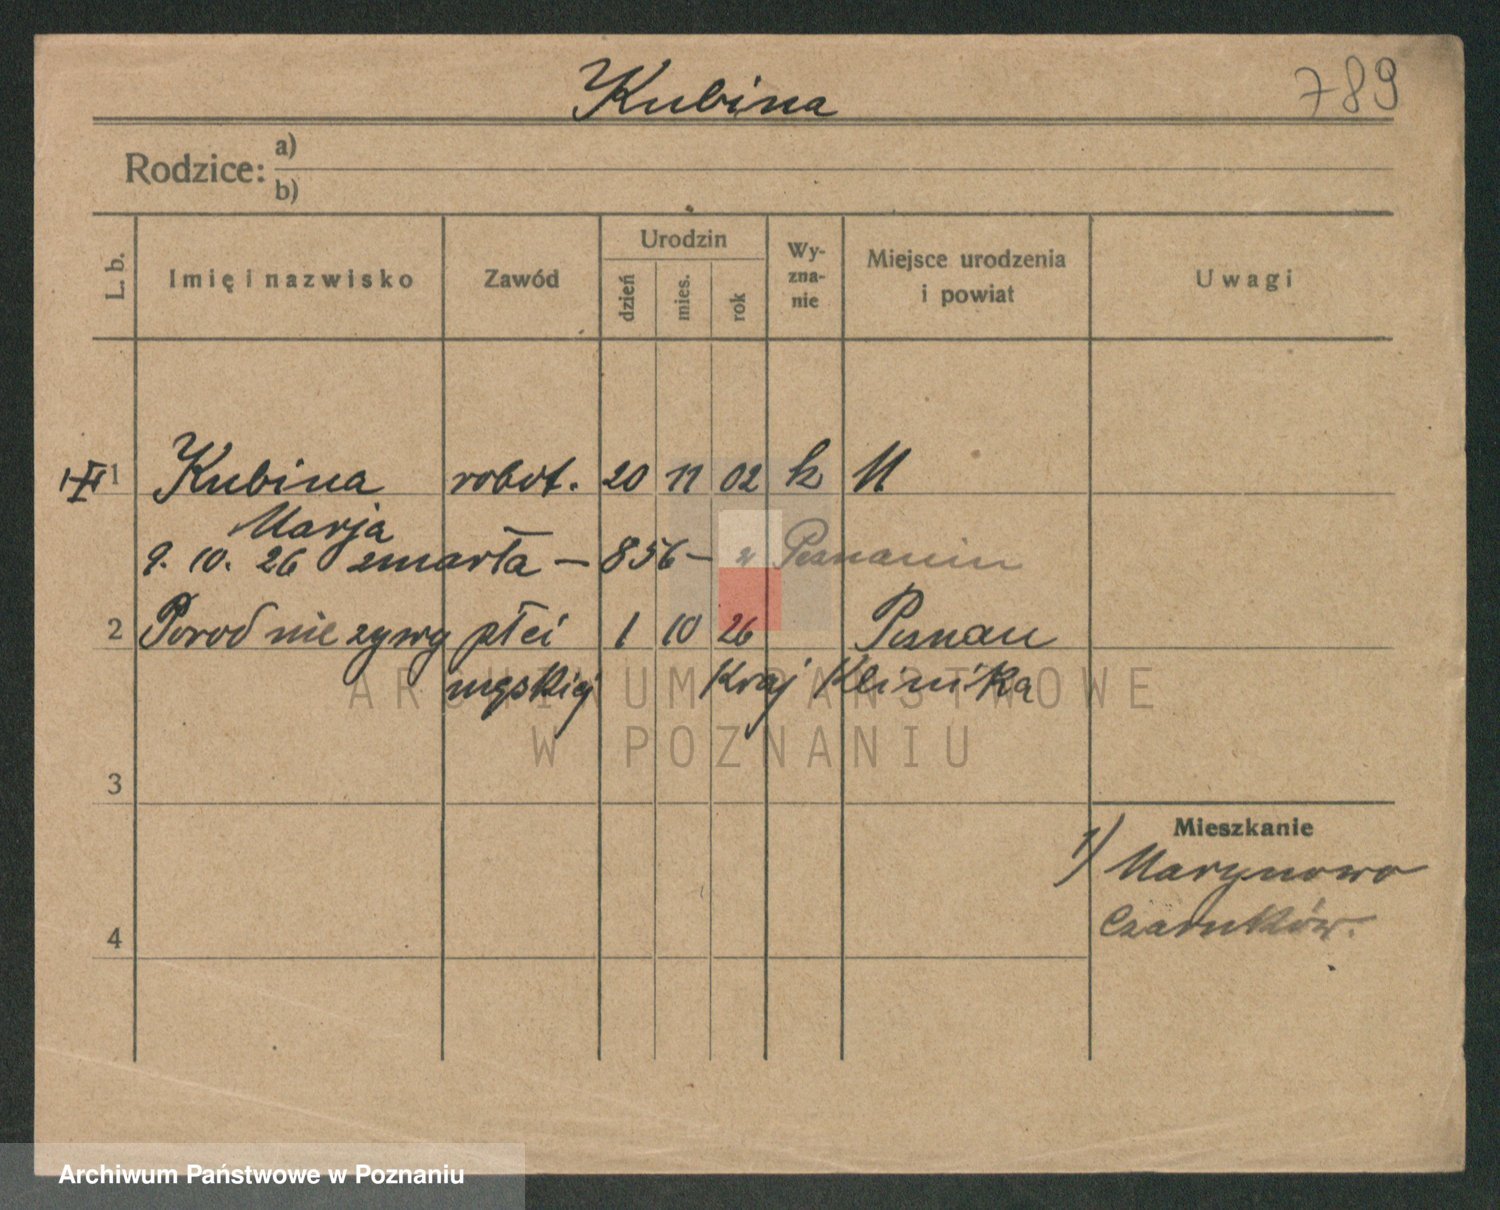 Kubina
789
Rodzice: a)
b)
L. b.
Imię i nazwisko
Zawód
Urodzin
dzień
mies.
rok
Wy-
zna-
nie
Miejsce urodzenia
i powiat
Uwagi
1 Kubina robot. 20 11 02 k
Marja
9. 10. 26 zmarła – 856 – w Poznaniu
2 Porod nie zywy płci 1 10 26 Poznań
męskiej Kraj Klinika
3
Mieszkanie
1) Marynowo
Czarnków.
4
ARCHIWUM PAŃSTWOWE
W POZNANIU
Archiwum Państwowe w Poznaniu